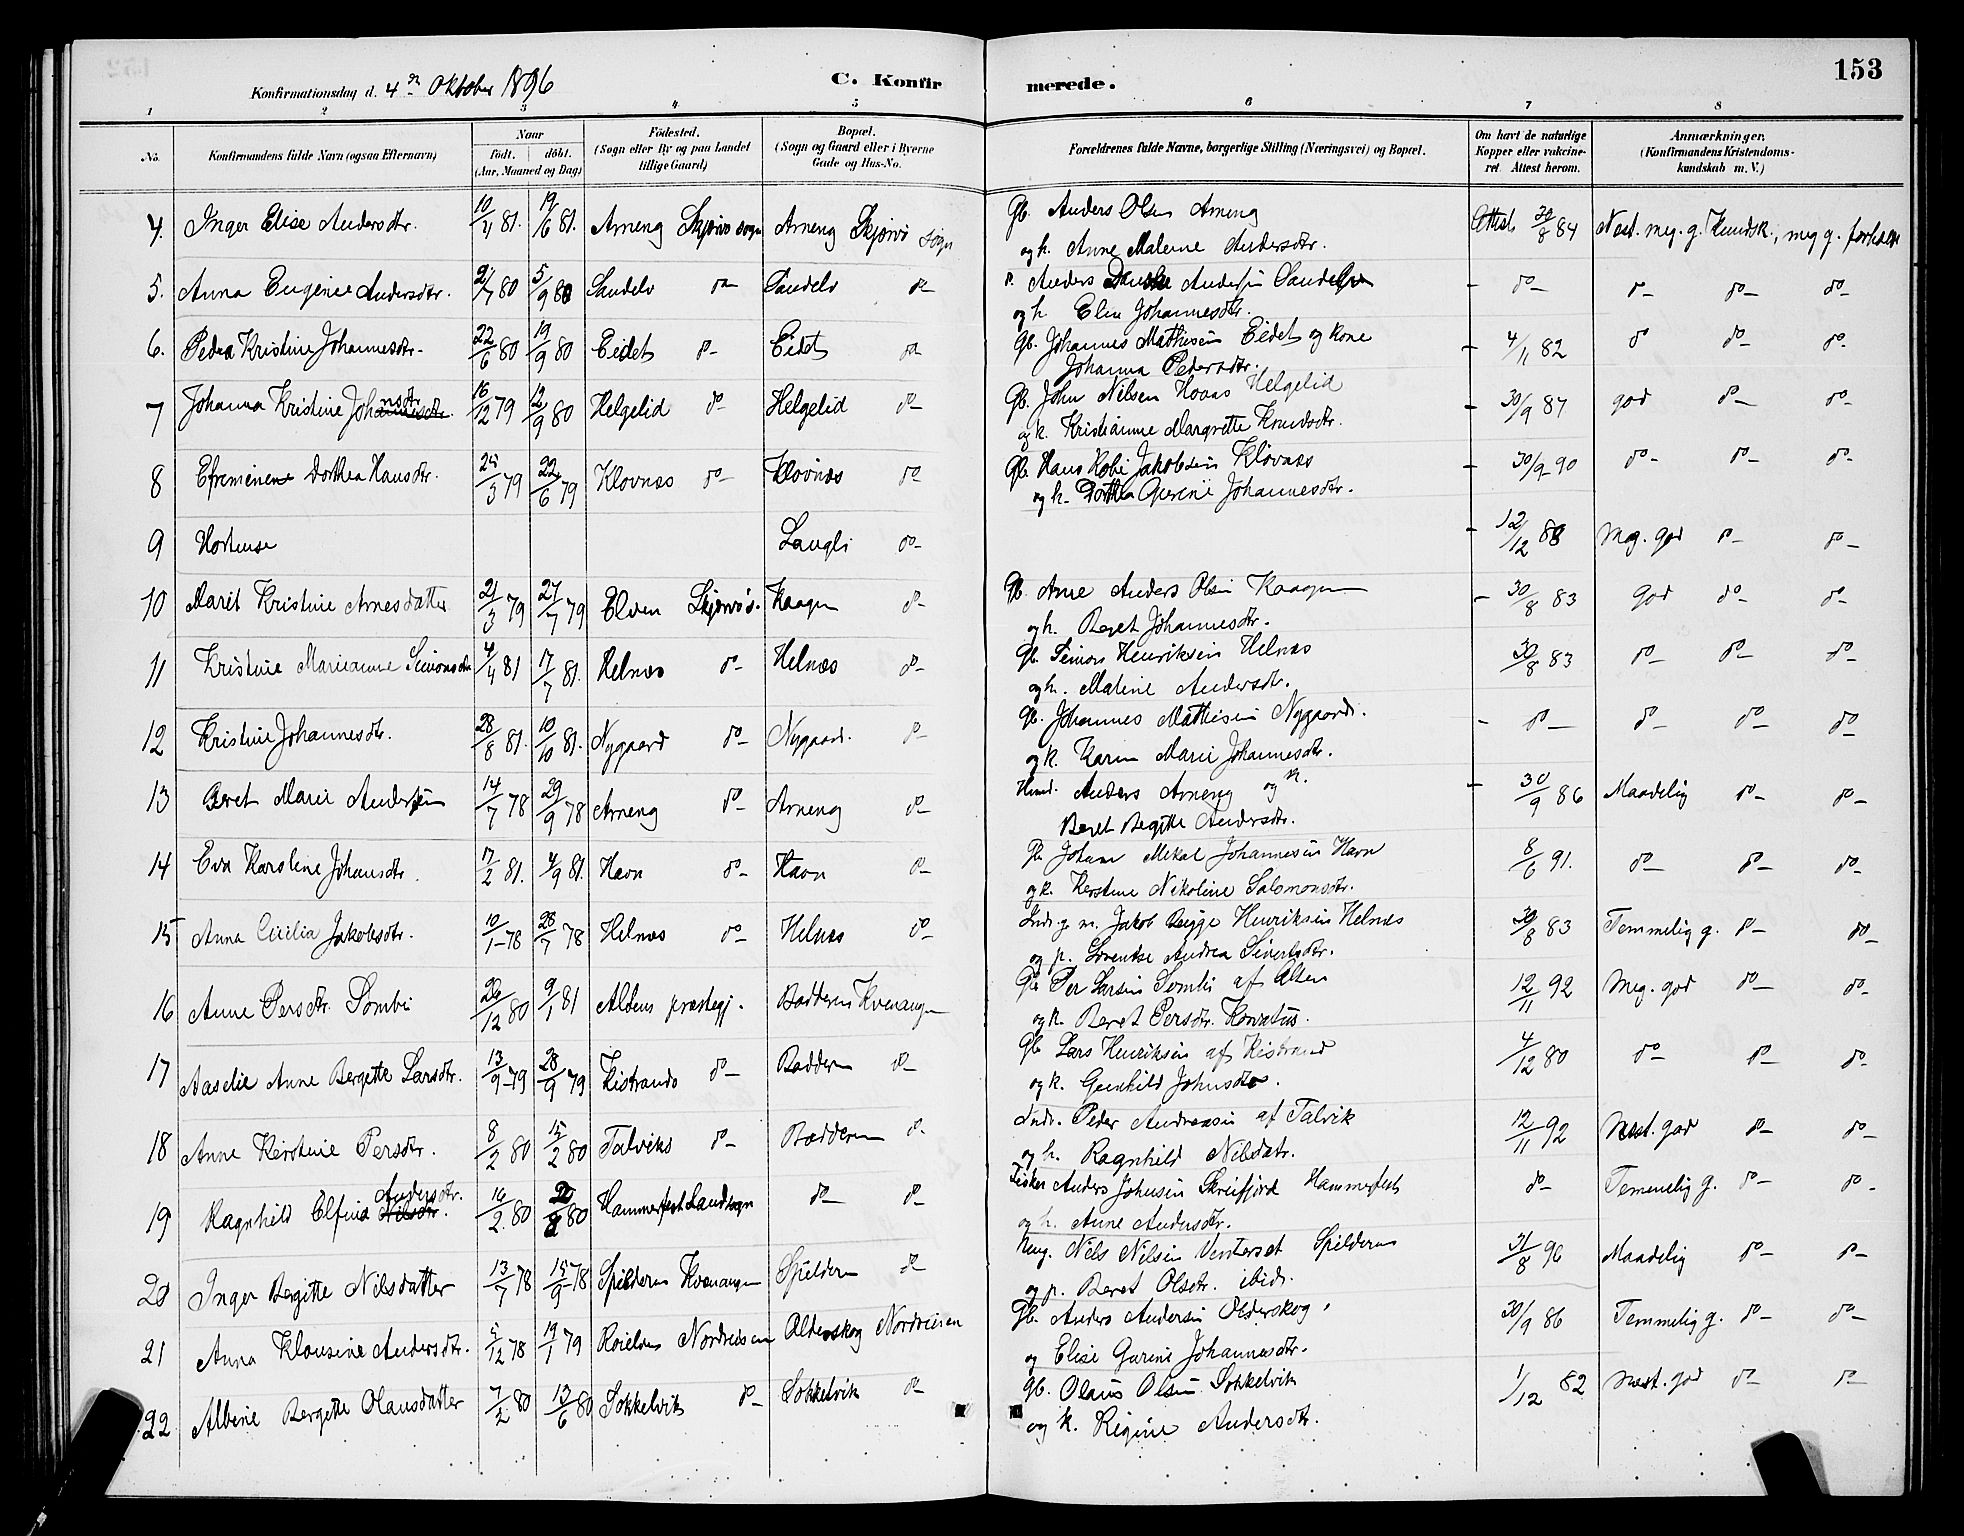 153
Konfirmationsdag d. 4de Oktober 1896 C. Konfirmerede.
1 2 3 4 5 6 7 8
No. Konfirmandens fulde Navn (ogsaa Efternavn) Naar født. døbt. (Aar, Maaned og Dag) Fødested. (Sogn eller By og paa Landet tillige Gaard) Bopæl. (Sogn og Gaard eller i Byerne Gade og Hus-No. Forældrenes fulde Navne, borgerlige Stilling (Næringsvei) og Bopæl. Om havt de naturlige Kopper eller vakcineret Attest herom. Anmærkninger. (Konfirmandens Kristendomskundskab m. V.)
4. Inger Elise Andersdtr. 10/4 81. 19/6 81. Arneng Skjervø sogn Arneng Skjervø sogn Gb. Anders Olsen Arneng Attest 30/8 84 Næst. meg. g. Kundsk., meg g. forhold
og k. Anne Malene Andersdtr.
5. Anna Eugenie Andersdtr. 2/7 80 5/9 80 Sandelv do- Sandelv do- Anders Andersen - do- do- do- do-
og h Elen Johannesdtr.
6. Pedra Kristine Johannesdtr. 22/6 80 19/9 80 Eidet do- Eidet do- Gb. Johannes Mathisen Eidet og kone - 4/11 82 do do- do-
Johanna Pedersdtr.
7 Johanna Kristine Johnsdtr. 16/12 79 12/9 80 Helgelid do- Helgelid do- Gb. John Nilsen Hovas Helgelid - 30/9 87 god do- do-
og k. Kristianne Margrette Knudsdtr.
8 Efremine Dorthea Hansdtr. 25/3 79 22/6 79 Kløvnæs do- Kløvnæs do- Gb. Hans Kobi Jakobsen Kløvnæs - 30/9 90 do- do- do-
og h. Dorthea Gurine Johannesdtr.
9 Hortense Laugli do- - 12/12 88 Meg. god do- do-
10 Marit Kristine Arnesdatter 21/3 79 27/7 79 Elven Skjervø s. Kaagen do- Gb. Arne Anders Olsen Kaagen - 30/8 83 god do- do-
og h. Beret Johannesdtr.
11 Kristine Marianne Simonsdtr 4/4 81 17/7 81. Helnæs do- Helnæs do- Gb. Simon Henriksen Helnæs 30/8 83 do- do- do-
og h. Maline Andersdtr.
12 Kristine Johannesdtr. 28/8 81. 10/10 81. Nygaard do- Nygaard. do- Gb. Johannes Mathisen Nygaard. - do- do- do- do-
og k. Karen Marie Johannesdtr.
13 Beret Marie Andersen 14/7 78 29/9 78 Arneng do- Arneng do- Anders Arneng og k. - 30/9 86 Maadelig do- do-
Beret Begitte Andersdtr.
14 Eva Karoline Johansdtr. 17/2 81. 4/9 81. Havn do- Havn do- Gb Johan Mikal Johannesen Havn 8/6 91. do- do- do-
og k. Kerstine Nikoline Salomonsdtr.
15 Anna Cicilia Jakobsdtr. 10/1 78 28/7 78 Helnæs do- Helnæs do- Indr. g. m. Jakob Bigge Henriksen Helnæs 30/8 83 Temmelig g. do- do-
og p. Lorentse Andrea Sivertsdtr.
16 Anne Persdtr. Sombi 26/12 80 9/1 81 Altens prestegj. Badderen Kvenangen Gb Per Larsen Sombi af Alten 12/11 92 Meg. god do- do-
og k. Beret Persdtr.
17 Aaselie Anne Bergette Larsdtr. 13/9 79 28/9 79 Kistrands do- Badderen do- Gb Lars Henriksen af Kistrand 4/12 80 do- do- do-
og k. Gunhild Johnsdtr.
18 Anne Kerstine Persdtr. 8/2 80 15/2 80 Talviks do- Badderen do- Indr. Peder Andreasen af Talvik 12/11 92 Næst. god do- do-
og h. Ragnhild Nilsdtr.
19 Ragnhild Elfina Nilsdtr. Andersdtr. 16/2 80 80 Hammerfest Landsogn do- do- Fisker Anders Johnsen Skreifjord Hammerfest do- Temmelig g. do- do-
og h. Anne Andersdtr.
20 Inger Bergitte Nilsdatter 13/7 78 15/9 78 Spilderen Kvenangen Spilderen do- Ung. Nils Nilsen Venterset Spilderen 31/8 96 Maadelig do- do-
og p. Beret Olsdtr. ibid.
21 Anna Klausine Andersdtr. 5/12 78 19/1 79 Roielen Nordreisen Olderskog Nordreisen Gb. Anders Andersen Olderskog 30/9 86 Temmelig g. do- do-
og Elise Gurine Johannesdtr.
22. Albine Bergette Olausdatter 7/2 80 13/6 80 Sokkelvik do- Sokkelvik do- Gb. Olaus Olsen Sokkelvik 1/12 82 Næst. god do- do-
og k. Regine Andersdtr.